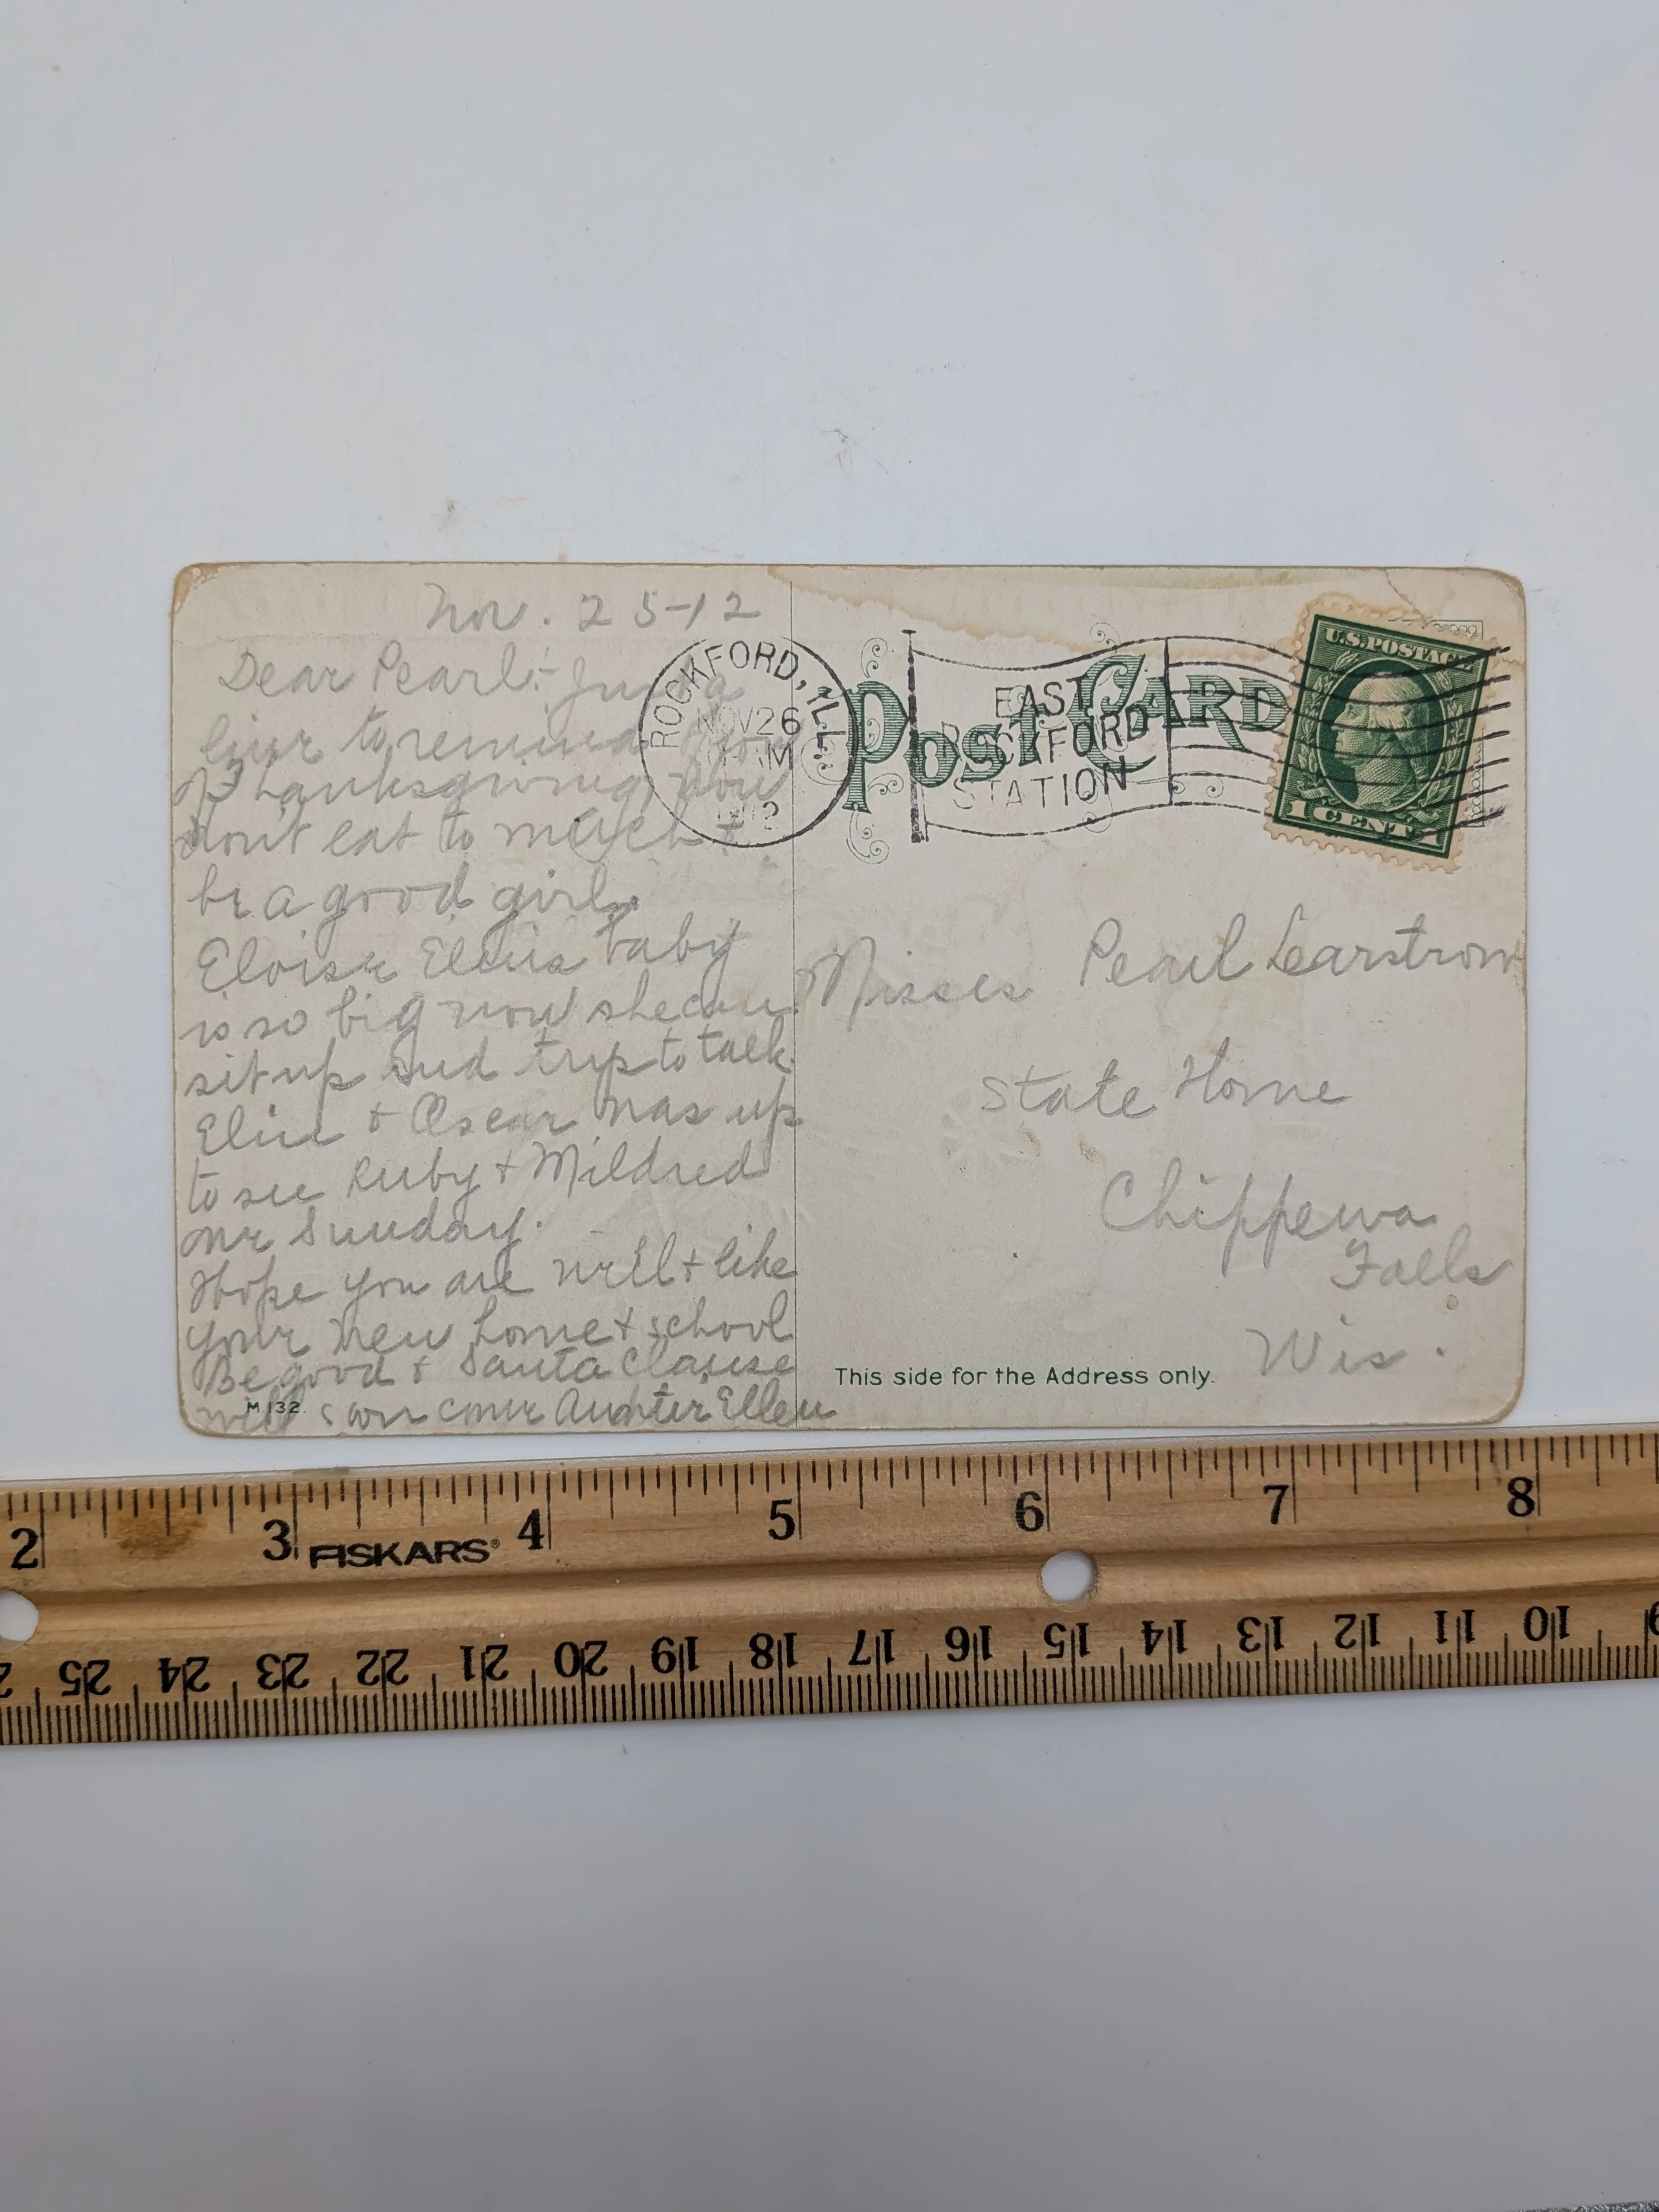 Nov. 25-12
Dear Pearl:- Just a
line to remind you
of Thanksgiving, now
dont eat to much +
be a good girl.
Eloise Elsies baby
is so big now she can
sit up and trys to talk.
+ Oscar was up
to see Ruby + Mildred
on Sunday.
Hope you are well + like
your new home + school
Be good + Santa Clause
will soon come Aunter Ellen
M.132.
ROCKFORD, ILL.
NOV 26
M
1912
EAST
ROCKFORD
STATION
POST CARD
U.S. POSTAGE
1 CENT 1
Misses Pearl Learstrom
State Home
Chippewa
Falls
Wis.
This side for the Address only.
2 3 FISKARS® 4 5 6 7 8
25 24 23 22 21 20 19 18 17 16 15 14 13 12 11 10 9